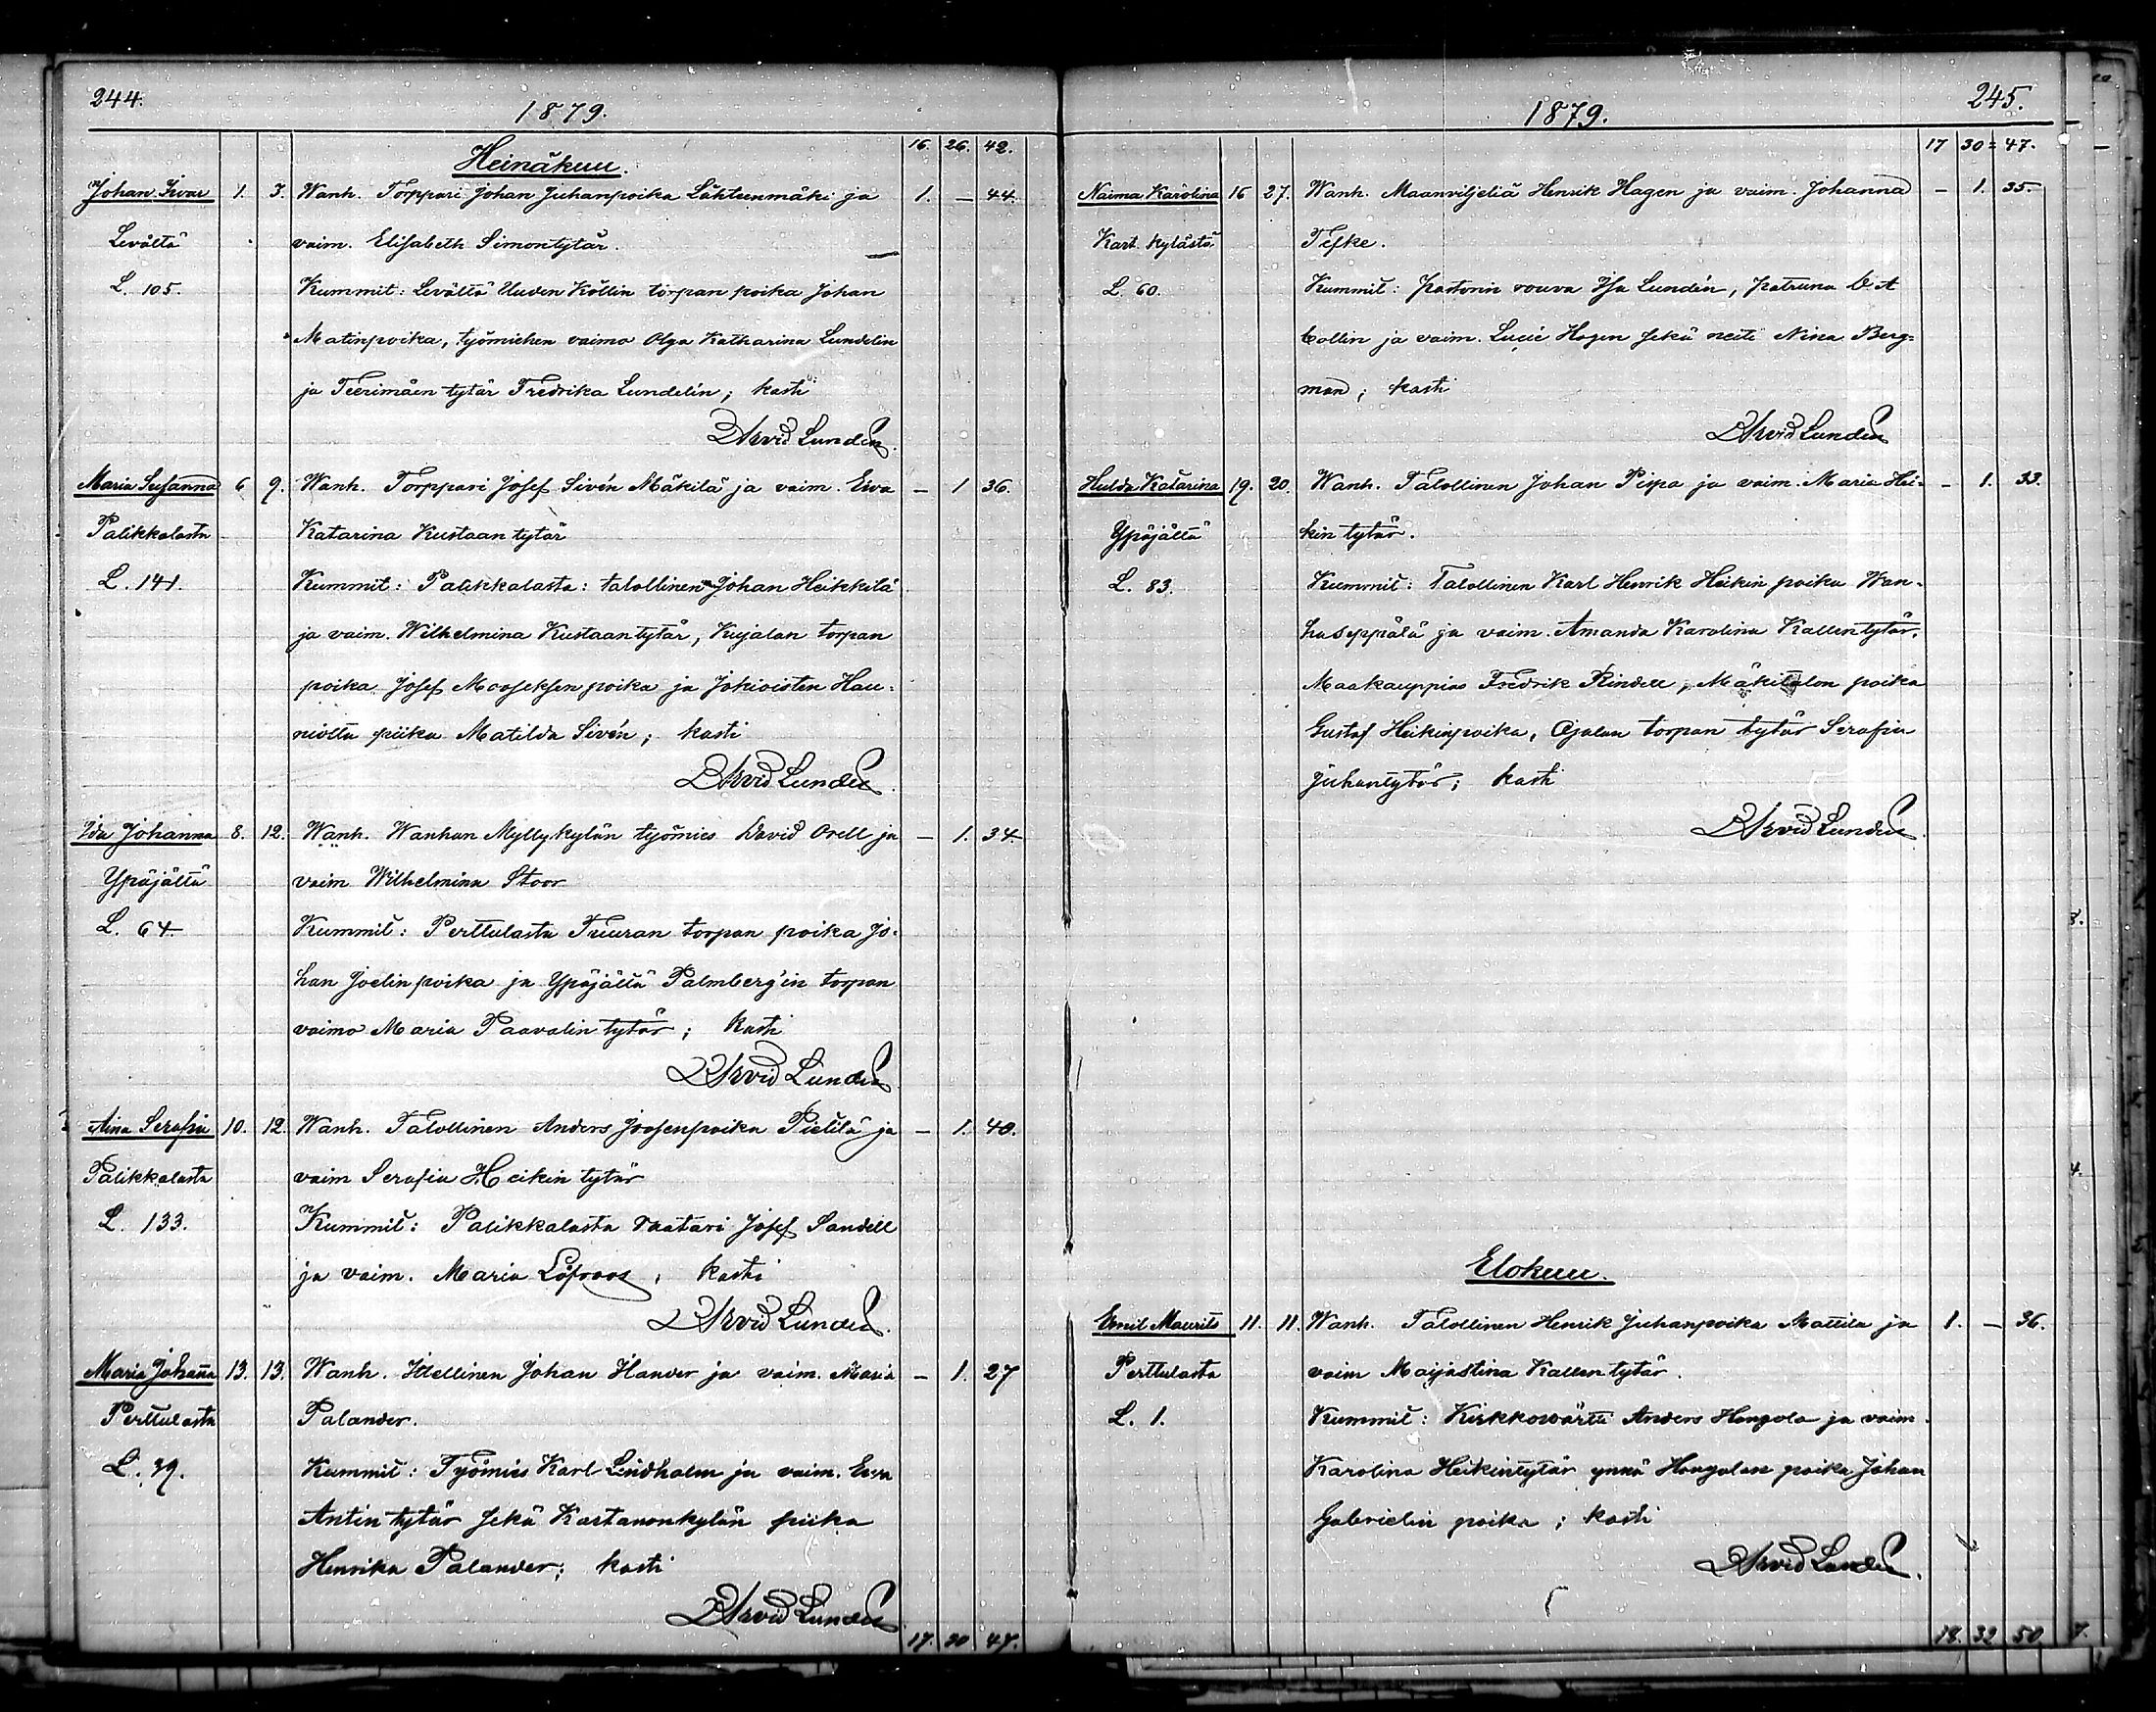 244.
1879.
16. 26. 42.
Heinäkuu.
Johan Ivar 1. 3. Wanh. Torppari Johan Juhanpoika Lähteenmäki ja 1. — 44.
Levältä vaim. Elisabeth Simontytär.
L. 105. Kummit: Levältä Uuden Köllin torpan poika Johan
Matinpoika, työmiehen vaimo Olga Katharina Lundelin
ja Teerimäen tytär Fredrika Lundelin; kasti
Arvid Lundén.
Maria Susanna 6 9. Wanh. Torppari Josef Sivén Mäkilä ja vaim. Ewa — 1 36.
Palikkalasta Katarina Kustaan tytär
L. 141. Kummit: Palikkalasta: talollinen Johan Heikkilä
ja vaim. Wilhelmina Kustaantytär, Kujalan torpan
poika Josef Mooseksen poika ja Jokioisten Hau-
niolta piika Matilda Sivén; kasti
Arvid Lundén.
Ida Johanna 8. 12. Wanh. Wanhan Myllykylän työmies David Orell ja — 1. 34.
Ypäjältä vaim Wilhelmina Stoor
L. 64. Kummit: Perttulasta Tuuran torpan poika Jo-
han Joelin poika ja Ypäjältä Palmberg'in torpan
vaimo Maria Paavalin tytär; kasti
Arvid Lundén
Aina Serafia 10. 12. Wanh. Talollinen Anders Joosenpoika Pietilä ja — 1. 40.
Palikkalasta vaim Serafia Heikin tytär
L. 133. Kummit: Palikkalasta räätäri Josef Sandell
ja vaim. Maria Löfroos, kasti
Arvid Lundén.
Maria Johanna 13. 13. Wanh. Itsellinen Johan Hander ja vaim. Maria — 1. 27
Perttulasta Palander.
L. 39. Kummit: Työmies Karl Lindholm ja vaim. Ewa
Antin tytär sekä Kartanonkylän piika
Henrika Palander; kasti
Arvid Lundén
17. 30 47.
245.
1879.
17 30 47.
Naima Karolina 16 27. Wanh. Maanviljeliä Henrik Hagen ja vaim. Johanna — 1. 35
Kart. kylästä Tefke.
L. 60. Kummit: pastorin rouva Ida Lundén, patruuna O A
Collin ja vaim. Lucie Hagen sekä neiti Nina Berg-
man; kasti
Arvid Lundén
Hulda Katarina 19. 20. Wanh. Talollinen Johan Pispa ja vaim. Maria Hei- — 1. 33.
Ypäjältä kin tytär.
L. 83. Kummit: Talollinen Karl Henrik Heikin poika Wan-
haseppälä ja vaim. Amanda Karolina Kallentytär,
Maakauppias Fredrik Rindell, Mäkitalon poika
Gustaf Heikinpoika, Ojalan torpan tytär Serafia
Juhantytär; kasti
Arvid Lundén.
Elokuu.
Emil Maurits 11. 11. Wanh. Talollinen Henrik Juhanpoika Mattila ja 1. — 36.
Perttulasta vaim Maijastina Kallen tytär.
L. 1. Kummit: Kirkkowärti Anders Hongola ja vaim.
Karolina Heikintytär ynnä Hongolan poika Johan
Gabrielin poika; kasti
Arvid Lundén.
18. 32 50